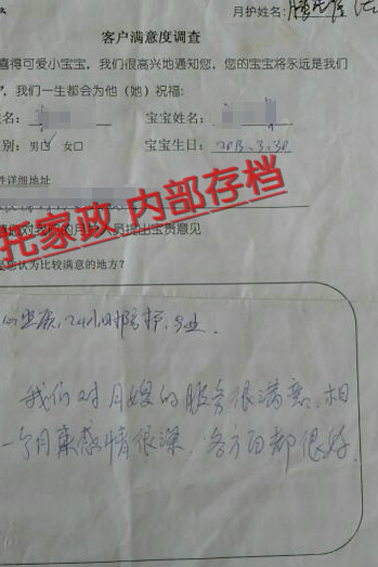 月护姓名:
客户满意度调查
喜得可爱小宝宝，我们很高兴地通知您，您的宝宝将永远是我们
，我们一生都会为他（她）祝福:
姓名: 宝宝姓名:
别: 男□ 女□ 宝宝生日: 2013.3.30
件详细地址
托家政 内部存档
您对我们的月护人员提出宝贵意见
您认为比较满意的地方?
24小时陪护,专业.
我们对月嫂的服务很满意.相
一个月来感情很深.各方面都很好.